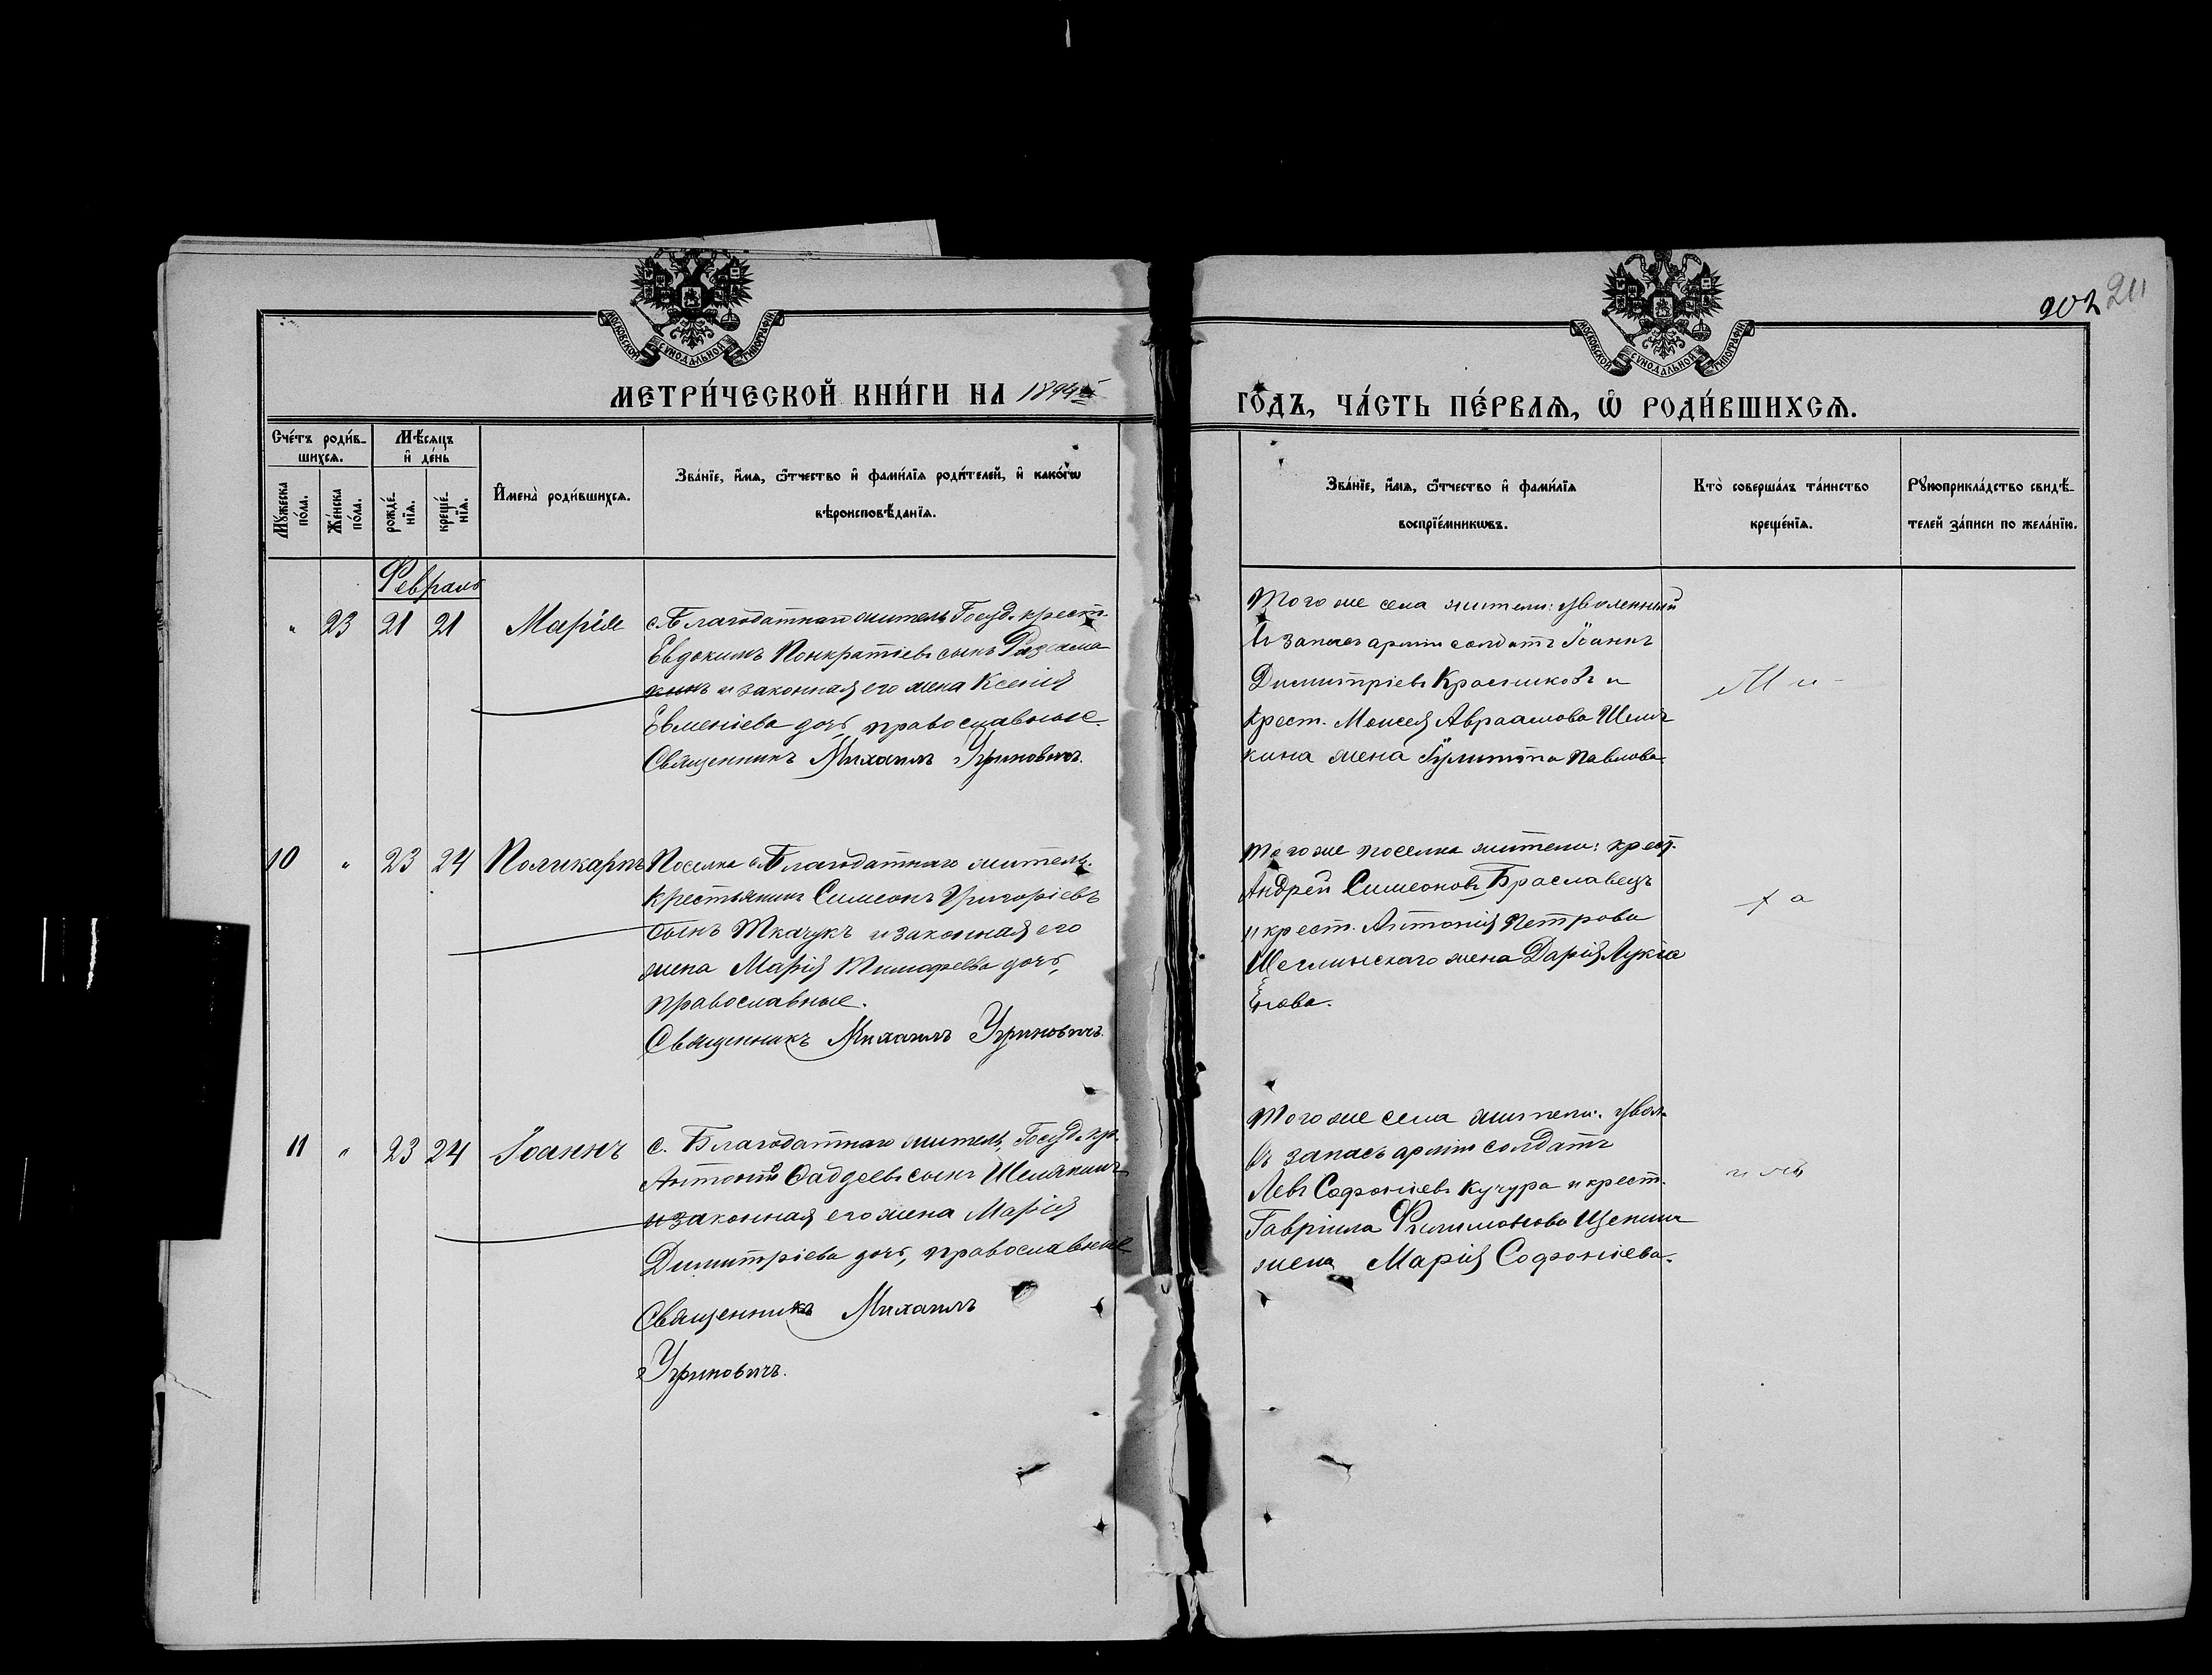 902 211
МОСКОВСКОЙ СѴНОДАЛЬНОЙ ТИПОГРАФІИ
МОСКОВСКОЙ СѴНОДАЛЬНОЙ ТИПОГРАФІИ
МЕТРИ́ЧЕСКОЙ КНИ́ГИ НА 1894й
ГО́ДЪ, ЧА́СТЬ ПЕ́РВАѦ, Ѡ҆ РОДИ́ВШИХСѦ.
Сче́тъ роди́в-
шихсѧ.
Мѣ́сѧцъ
и҆ де́нь
Мꙋ́жеска
по́ла.
Же́нска
по́ла.
рожде́-
нїѧ.
креще́-
нїѧ.
И҆мена̀ роди́вшихсѧ.
Зва́нїе, и҆́мѧ, ѻ҆́тчество и҆ фами́лїѧ роди́телей, и҆ како́гѡ
вѣроисповѣ́данїѧ.
Зва́нїе, и҆́мѧ, ѻ҆́тчество и҆ фами́лїѧ
воспрїе́мникѡвъ.
Кто̀ соверша́лъ та́инство
креще́нїѧ.
Рꙋкоприкла́дство свидѣ́-
телей за́писи по жела́нїю.
Февраль
" 23 21 21 Марія
с. Благодатнаго житель Госуд. крест.
Евдокимъ Понкратіевъ сынъ
и законная его жена Ксенія
Евменіева дочь, православные.
Священникъ Михаилъ Угриновичъ.
Того же села жители: уволенный
въ запасъ арміи солдатъ Іоаннъ
Димитріевъ Красниковъ и
крест. Моисея Авраамова Шемя
кина жена Іулитта Павлова.
10 " 23 24 Поликарпъ
Поселка с. Благодатнаго житель.
крестьянинъ Симеонъ Григоріевъ
сынъ Ткачукъ и законная его
жена Марія Тимофеева дочь,
православные.
Священникъ Михаилъ Угриновичъ.
Того же поселка жители: крест.
Андрей Симеоновъ Браславецъ
и крест. Антонія Петрова
Щеглинскаго жена Дарія Лукіа
нова.
11 " 23 24 Іоаннъ
с. Благодатнаго житель, Госуд. кр.
Антоній Фаддеевъ сынъ Шемякинъ
и законная его жена Марія
Димитріева дочь, православные
Священникъ Михаилъ
Угриновичъ.
Того же села жители: увол.
въ запасъ арміи солдатъ
Левъ Софоніевъ Кучура и крест.
Гавріила Филимонова
жена Марія Софоніева.